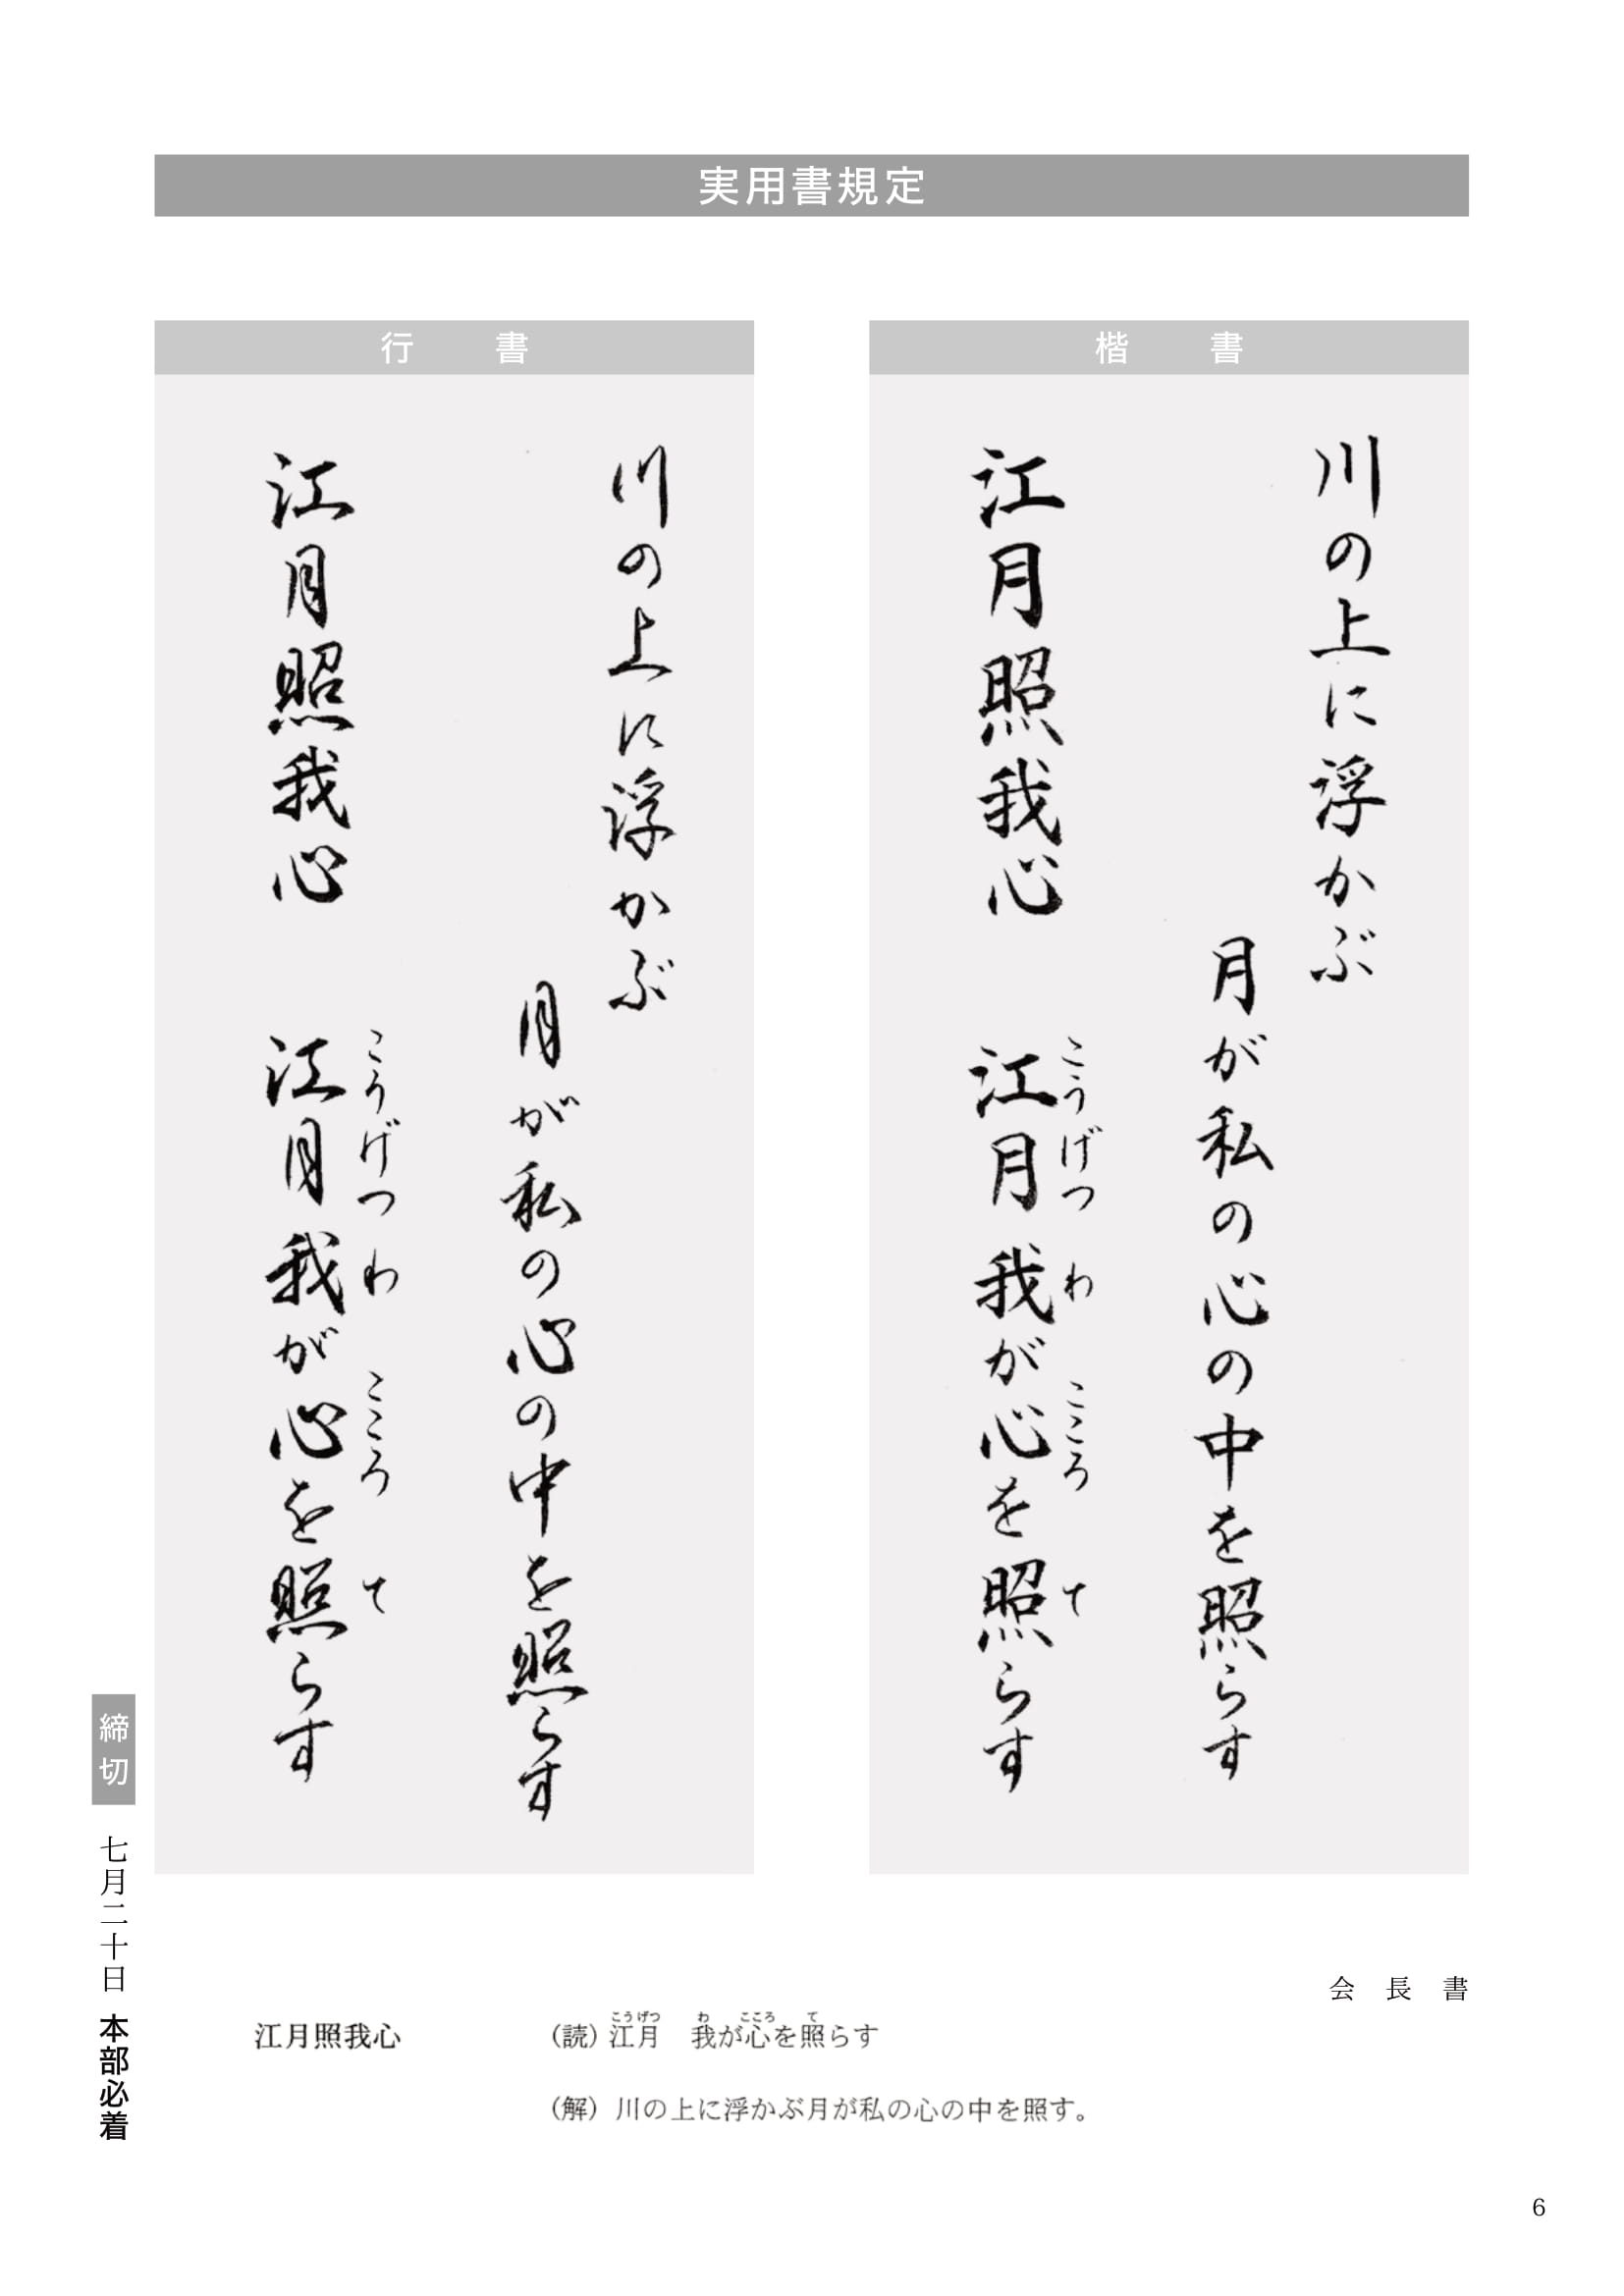 実用書規定
楷書
川の上に浮かぶ
月が私の心の中を照らす
江月照我心 江月我が心を照らす
こうげつ わ こころ て
行書
川の上に浮かぶ
月が私の心の中を照らす
江月照我心 江月我が心を照らす
こうげつ わ こころ て
会長書
江月照我心
こうげつ わ こころ て
（読）江月 我が心を照らす
（解）川の上に浮かぶ月が私の心の中を照す。
締切 七月二十日 本部必着
6